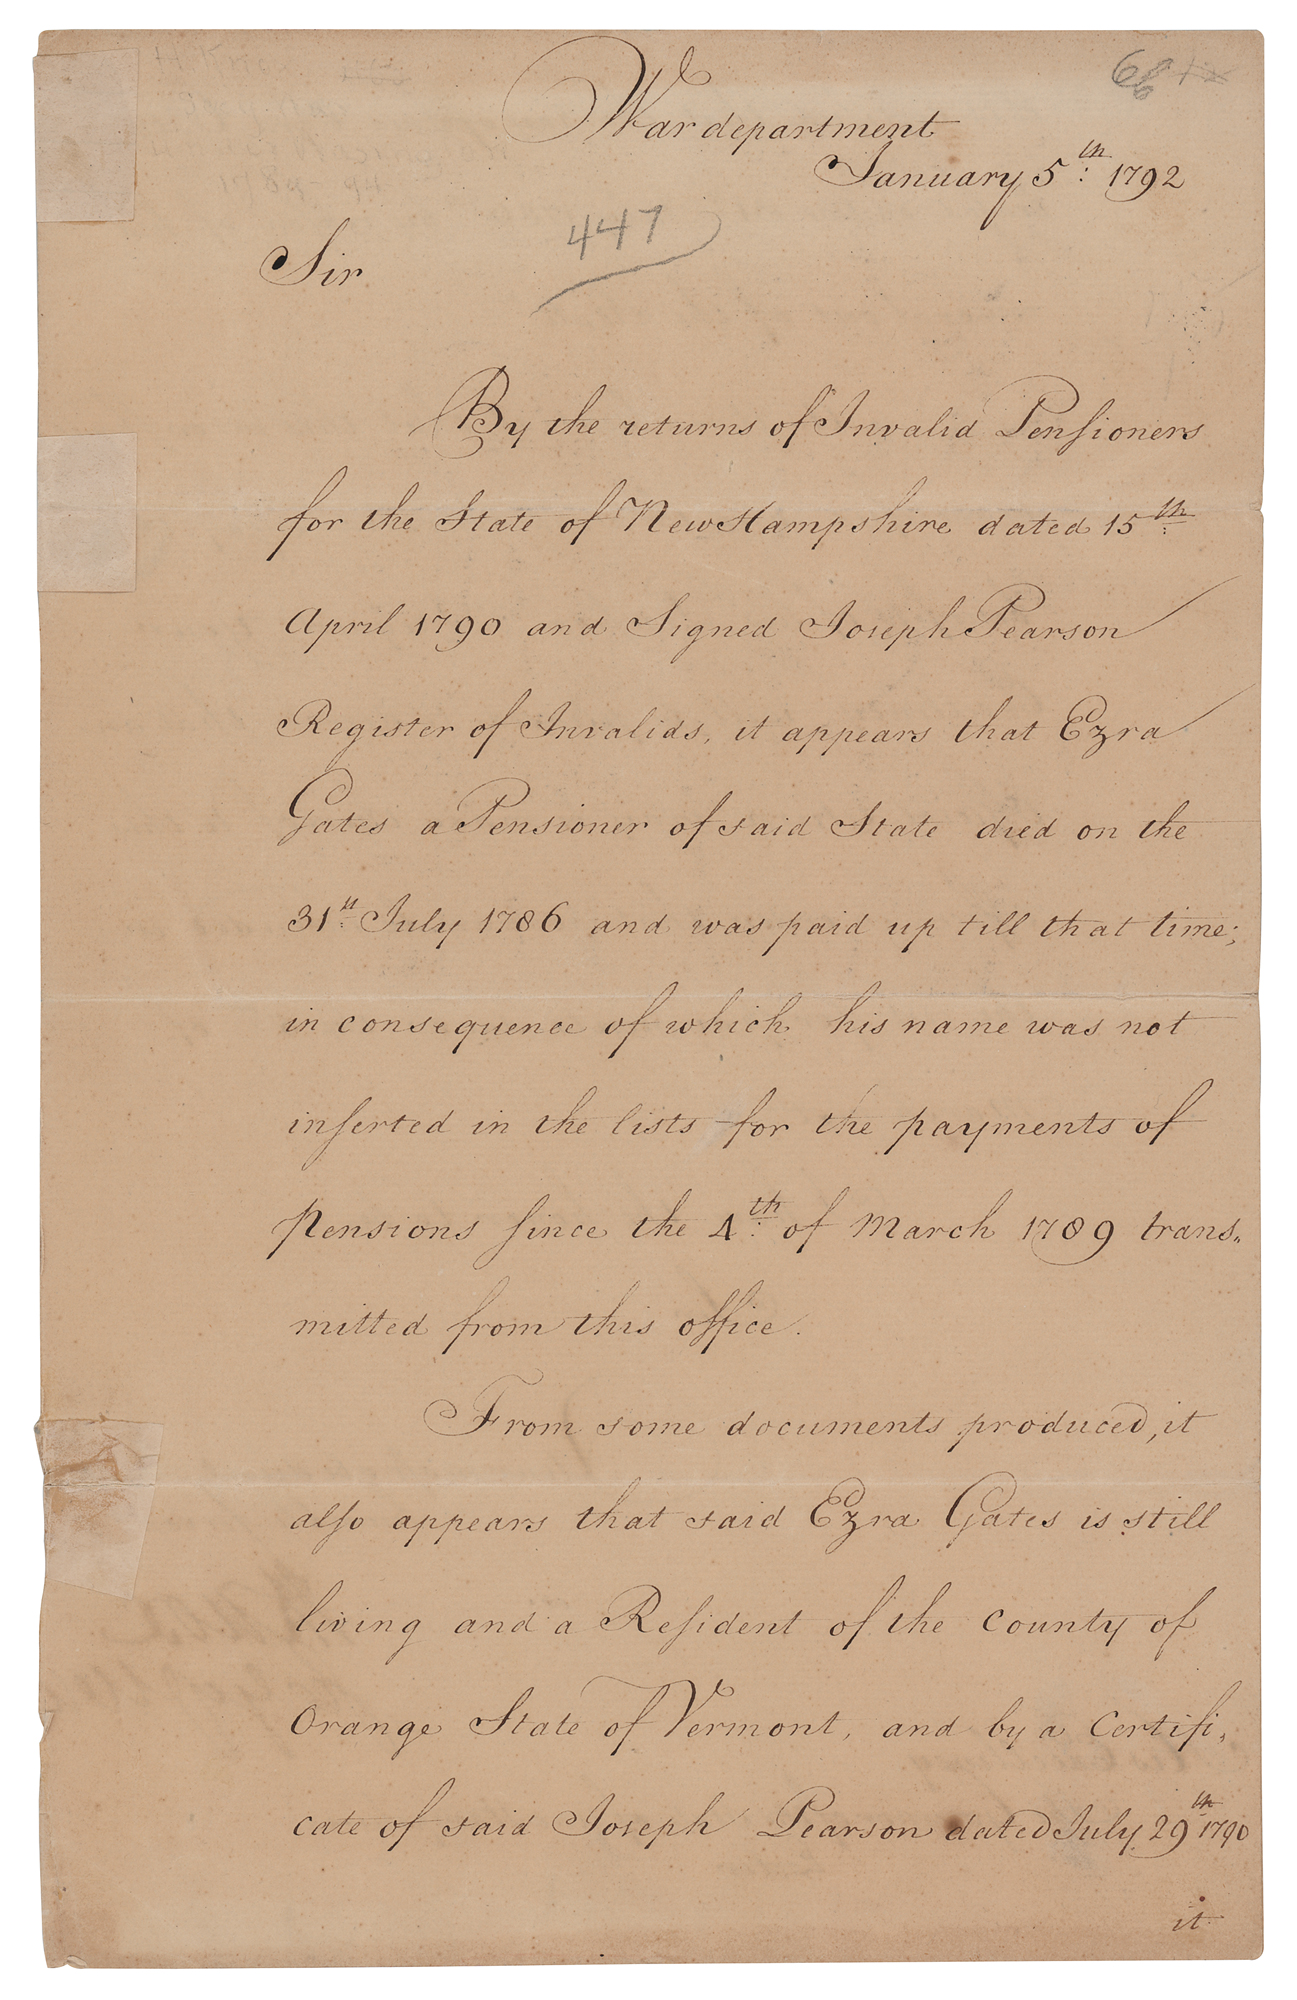 War department
January 5th: 1792
447
Sir
By the returns of Invalid Pensioners
for the State of New Hampshire dated 15th:
April 1790 and Signed Joseph Pearson
Register of Invalids, it appears that Ezra
Gates a Pensioner of said State died on the
31st: July 1786 and was paid up till that time;
in consequence of which his name was not
inserted in the lists for the payments of
Pensions since the 4th: of March 1789 trans„
mitted from this office.
From some documents produced, it
also appears that said Ezra Gates is still
living and a Resident of the County of
Orange State of Vermont, and by a Certifi,
cate of said Joseph Pearson dated July 29th 1790
it